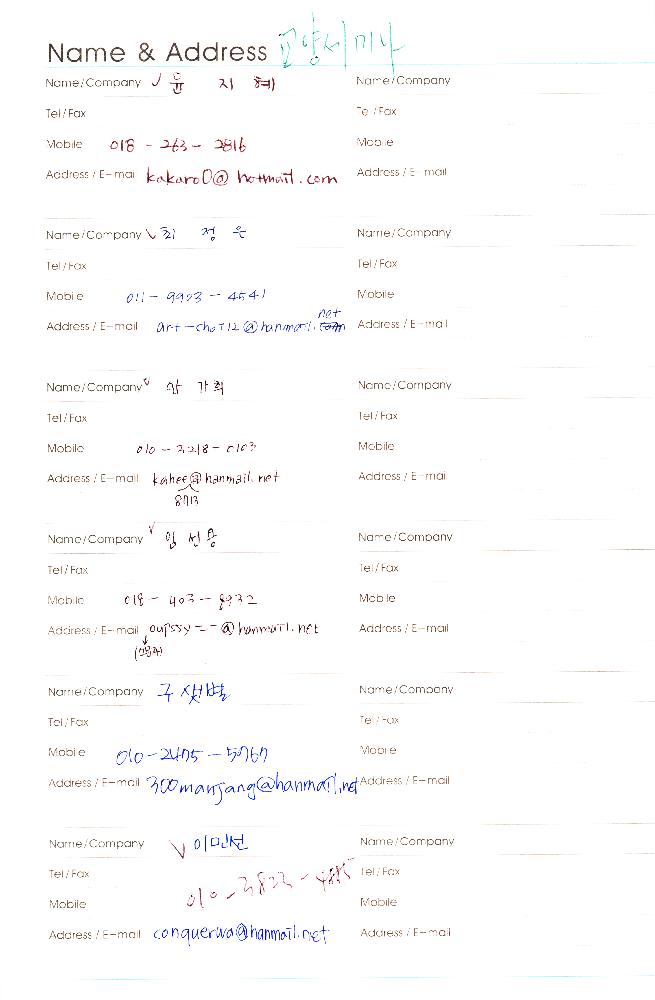 Name & Address 교양세미나
Name/Company ✓ 윤 지 혜 Name/Company
Tel/Fax Tel/Fax
Mobile 018 - 263 - 2816 Mobile
Address / E-mail kakaro0@hotmail.com Address / E-mail
Name/Company ✓ 최 정 은 Name/Company
Tel/Fax Tel/Fax
Mobile 011 - 9923 - 4541 Mobile
net
Address / E-mail art-cho712@hanmail. Address / E-mail
Name/Company ✓ 안 가 희 Name/Company
Tel/Fax Tel/Fax
Mobile 010 - 3218 - 0103 Mobile
Address / E-mail kahee@hanmail.net Address / E-mail
8713
Name/Company ✓ 임 선 용 Name/Company
Tel/Fax Tel/Fax
Mobile 018 - 403 - 8932 Mobile
Address / E-mail oupssy--@hanmail.net Address / E-mail
Name/Company 구 Name/Company
Tel/Fax Tel/Fax
Mobile 010-2475-5767 Mobile
Address / E-mail 300manjang@hanmail.net Address / E-mail
Name/Company ✓ 이민선 Name/Company
Tel/Fax 010-3822-4885 Tel/Fax
Mobile Mobile
Address / E-mail conquerwa@hanmail.net Address / E-mail